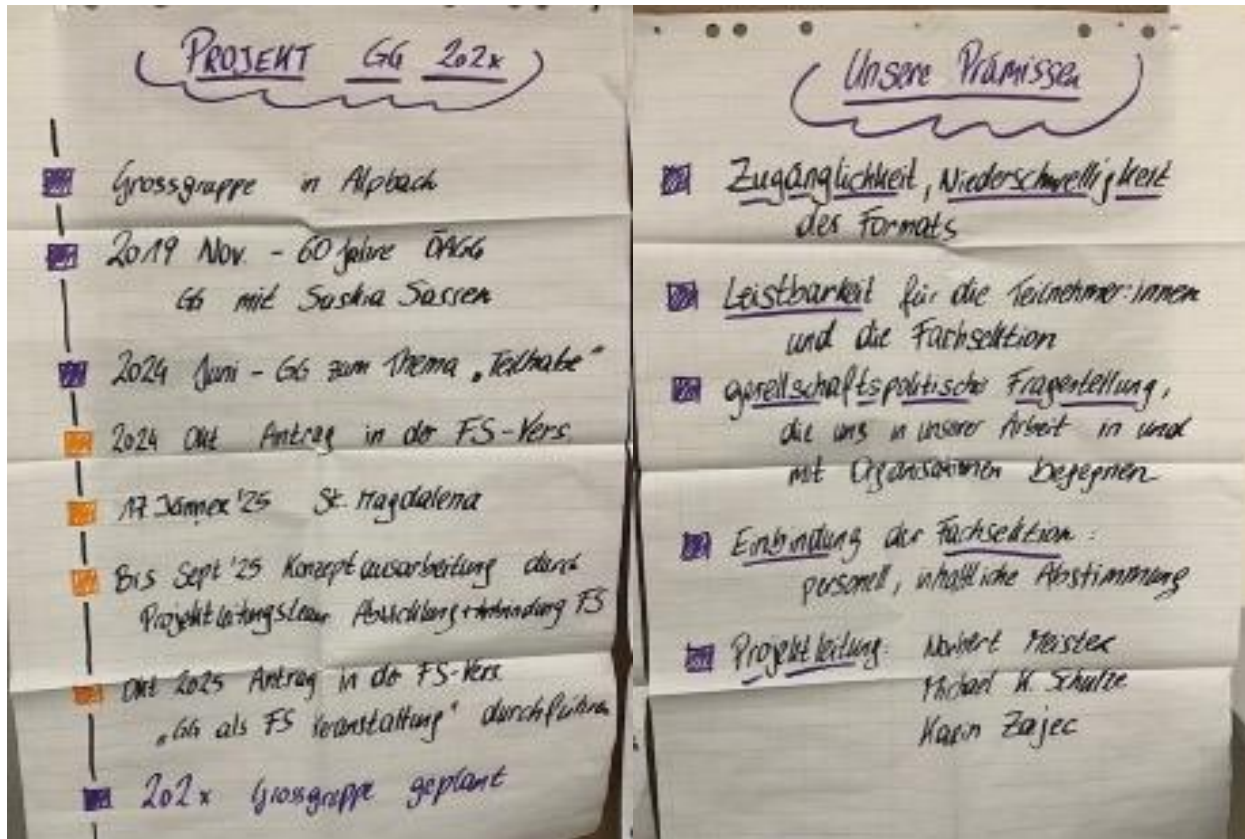 PROJEKT GG 202x
Grossgruppe in Alpbach
2019 Nov. - 60 Jahre ÖAGG
GG mit Saskia Sassen
2024 Juni - GG zum Thema „Teilhabe"
2024 Okt Antrag in der FS-Vers
17 Jänner '25 St. Magdalena
Bis Sept '25 Konzeptausarbeitung durch
Projektleitungsteam FS
Okt 2025 Antrag in der FS-Vers.
„GG als FS Veranstaltung" durchführen
202x Grossgruppe geplant
Unsere Prämissen
Zugänglichkeit, Niederschwelligkeit
des Formats
Leistbarkeit für die Teilnehmer:innen
und die Fachsektion
gesellschaftspolitische Fragestellung,
die uns in unserer Arbeit in und
mit Organisationen begegnen
Einbindung der Fachsektion:
personell, inhaltliche Abstimmung
Projektleitung: Norbert Meister
Michael K. Schulze
Karin Zajec